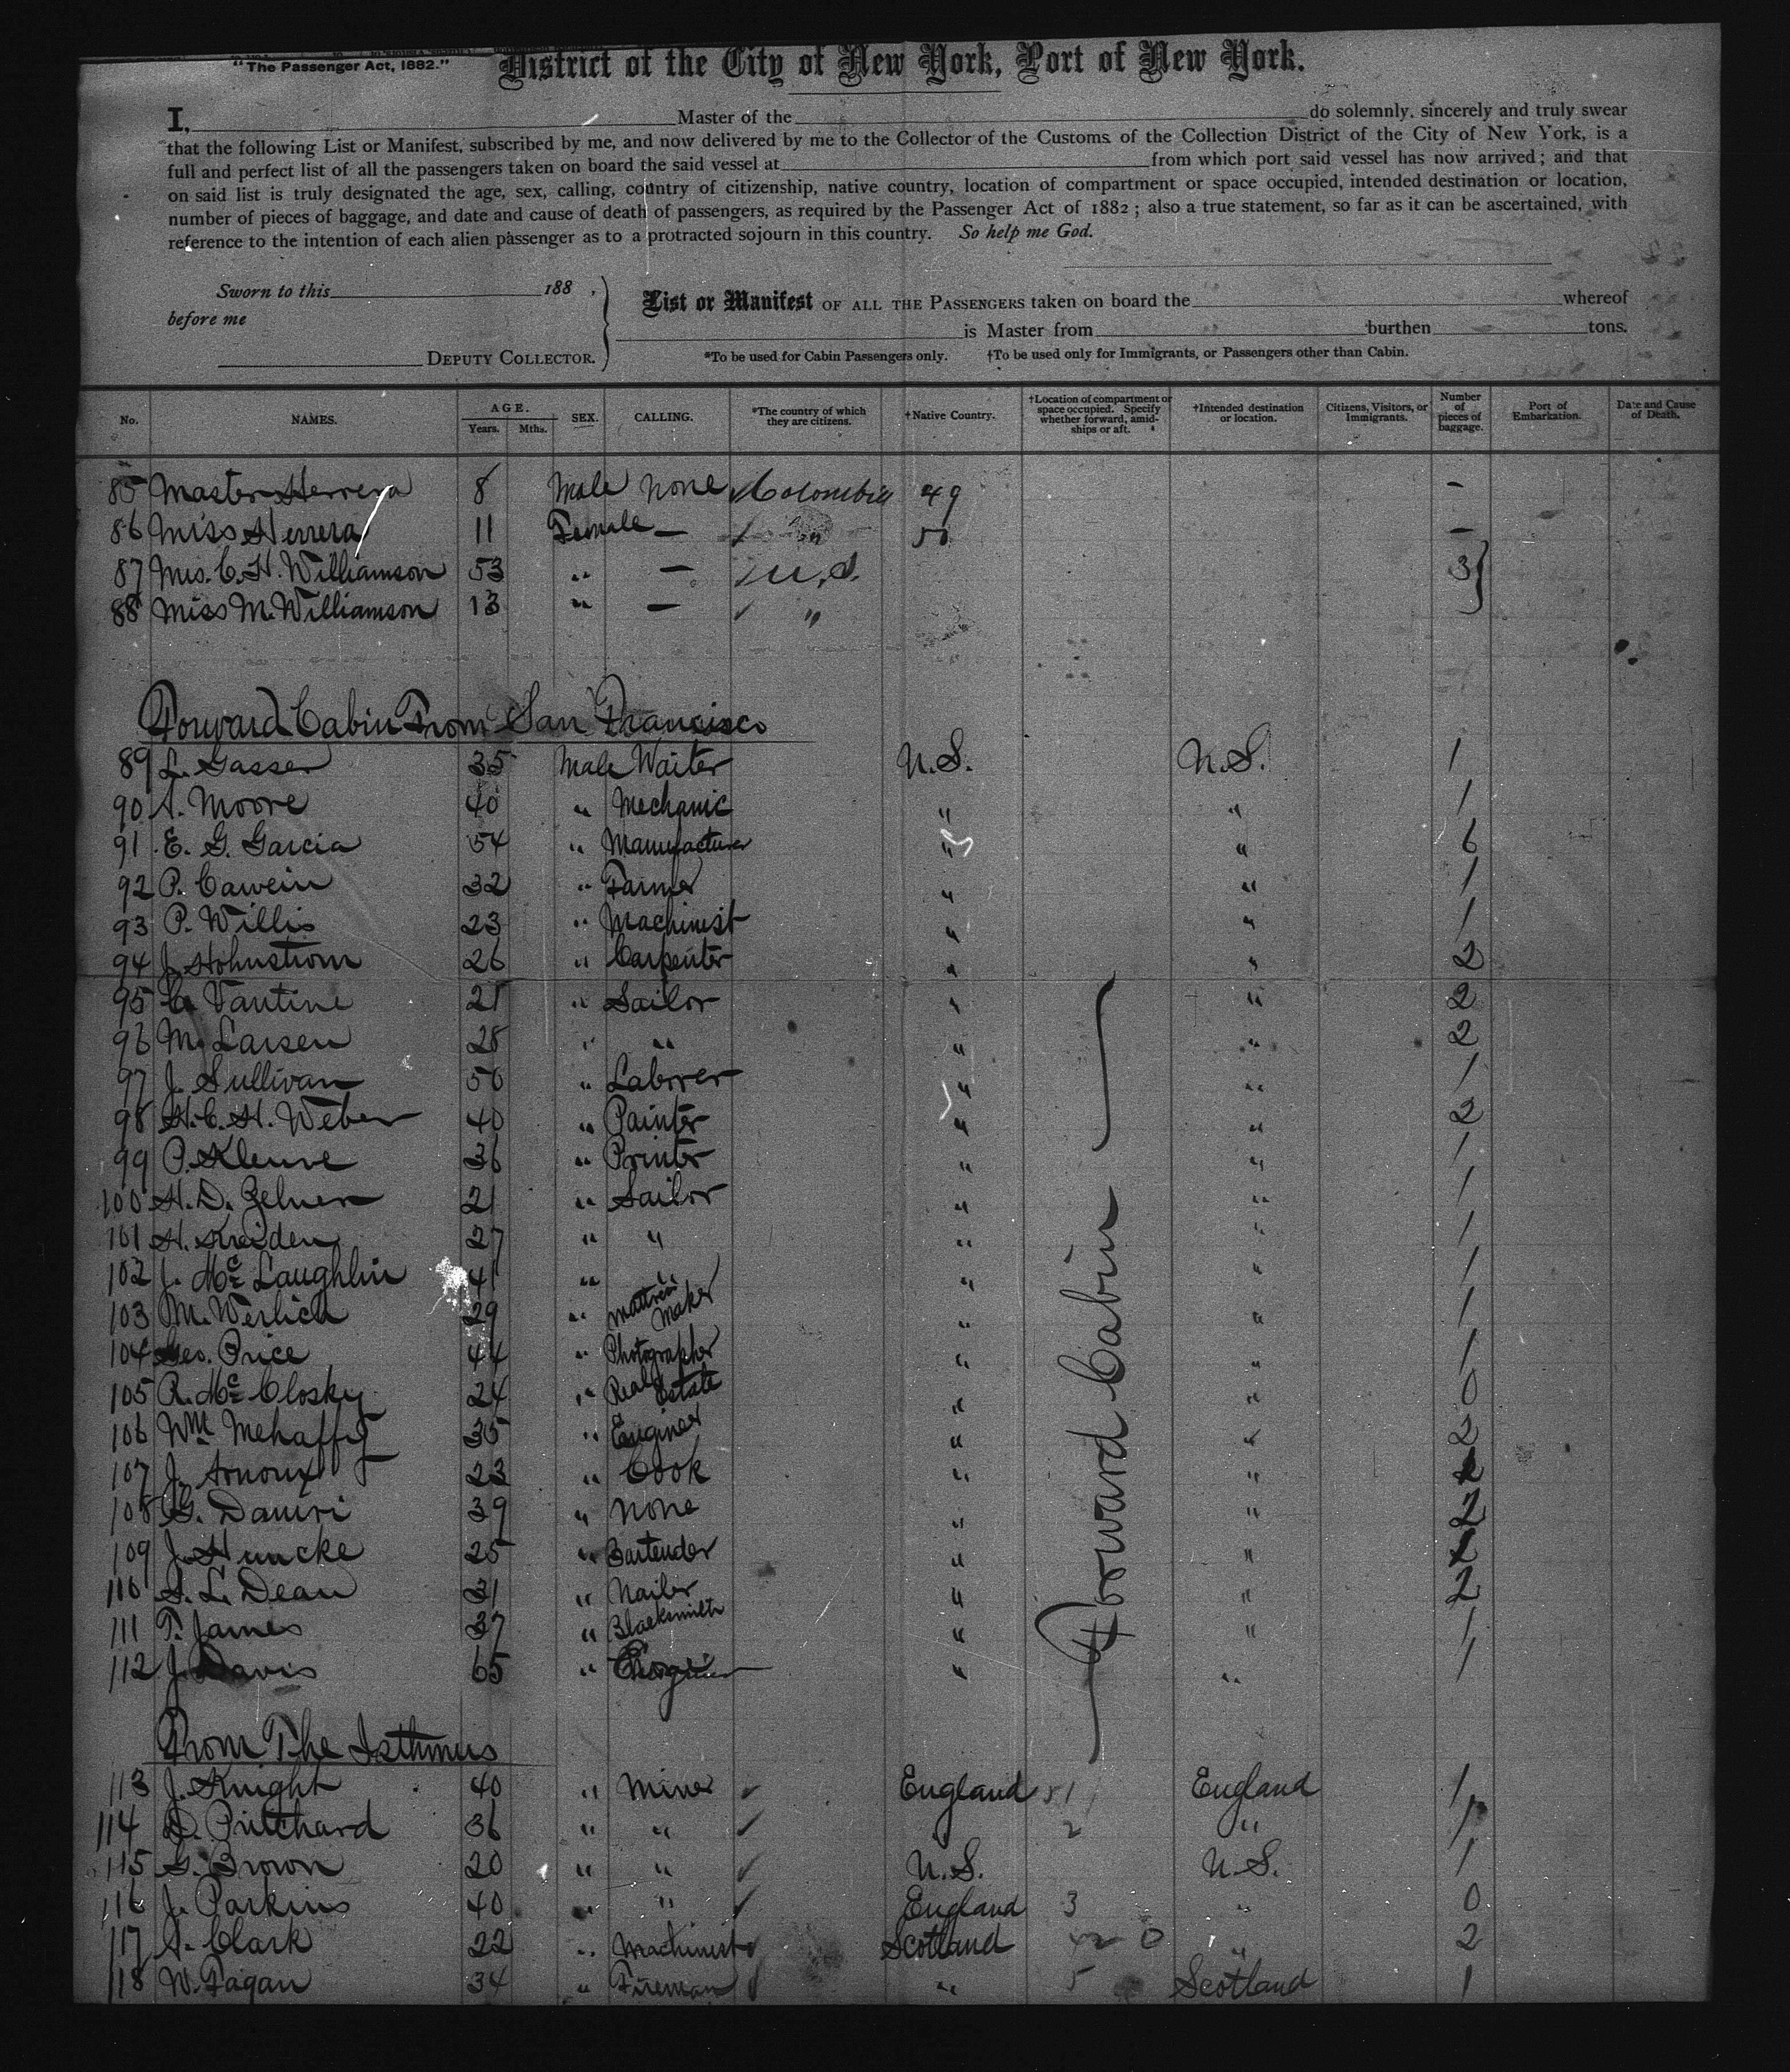 "The Passenger Act, 1882."
District of the City of New York, Port of New York.
I, Master of the do solemnly, sincerely and truly swear
that the following List or Manifest, subscribed by me, and now delivered by me to the Collector of the Customs of the Collection District of the City of New York, is a
full and perfect list of all the passengers taken on board the said vessel at from which port said vessel has now arrived; and that
on said list is truly designated the age, sex, calling, country of citizenship, native country, location of compartment or space occupied, intended destination or location,
number of pieces of baggage, and date and cause of death of passengers, as required by the Passenger Act of 1882; also a true statement, so far as it can be ascertained, with
reference to the intention of each alien passenger as to a protracted sojourn in this country. So help me God.
Sworn to this 188 .
before me
DEPUTY COLLECTOR.
List or Manifest OF ALL THE PASSENGERS taken on board the whereof
is Master from burthen tons.
*To be used for Cabin Passengers only. †To be used only for Immigrants, or Passengers other than Cabin.
No. NAMES. AGE. Years. Mths. SEX. CALLING. *The country of which they are citizens. †Native Country. †Location of compartment or space occupied. Specify whether forward, amidships or aft. †Intended destination or location. Citizens, Visitors, or Immigrants. Number of pieces of baggage. Port of Embarkation. Date and Cause of Death.
85 Master Herrera 8 Male None Colombia 49 -
86 Miss Herrera 11 Female — " 50 -
87 Mrs. C. H. Williamson 53 " — U.S. 3
88 Miss M. Williamson 13 " — "
Forward Cabin From San Francisco
89 L. Gasser 35 Male Waiter U.S. U.S. 1
90 A. Moore 40 " Mechanic " " 1
91 E. G. Garcia 54 " Manufacturer " " 6
92 P. Cawein 32 " Farmer " " 1
93 P. Willis 23 " Machinist " " 1
94 J. Hohnstrom 26 " Carpenter " " 2
95 C. Vantine 21 " Sailor " " 2
96 M. Larsen 28 " " " " 2
97 J. Sullivan 50 " Laborer " " 1
98 H. C. H. Weber 40 " Painter " " 2
99 P. 36 " Printer " " 1
100 H. D. Zelner 21 " Sailor " " 1
101 H. 27 " " " " 1
102 J. McLaughlin 41 " " " " 1
103 M. Werlich 29 " Mattress Maker " " 1
104 Geo. Price 44 " Photographer " " 1
105 R. McClosky 24 " Real Estate " " 0
106 Wm Mehaffy 35 " Enginer " " 2
107 J. Arnoux 23 " Cook " " 2
108 G. Damri 39 " None " " 2
109 J. Huncke 25 " Bartender " " 2
110 S. L. Dean 31 " Nailer " " 2
111 T. James 37 " Blacksmith " " 1
112 J. Davis 65 " " " 1
Forward Cabin
From The Isthmus
113 J. Knight 40 " Miner England 51 England 1
114 D. Pritchard 36 " " 2 " 1
115 G. Brown 20 " " U.S. U.S. 1
116 J. Parkins 40 " " England 3 " 0
117 A. Clark 22 " Machinist Scotland 0 " 2
118 W. Fagan 34 " Fireman " 5 Scotland 1